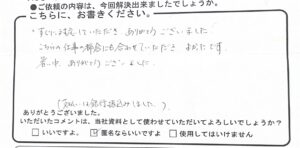 ●ご依頼の内容は、今回解決出来ましたでしょうか。
こちらに、お書きください。
対応していただき、ありがとうございました。
こちらの仕事の都合にも合わせていただき よかったです。
暑い中、ありがとうございました。
ありがとうございました。
いただいたコメントは、当社資料として使わせていただいてよろしいでしょうか？
□いいですよ。 ☑匿名ならいいですよ □使用してはいけません